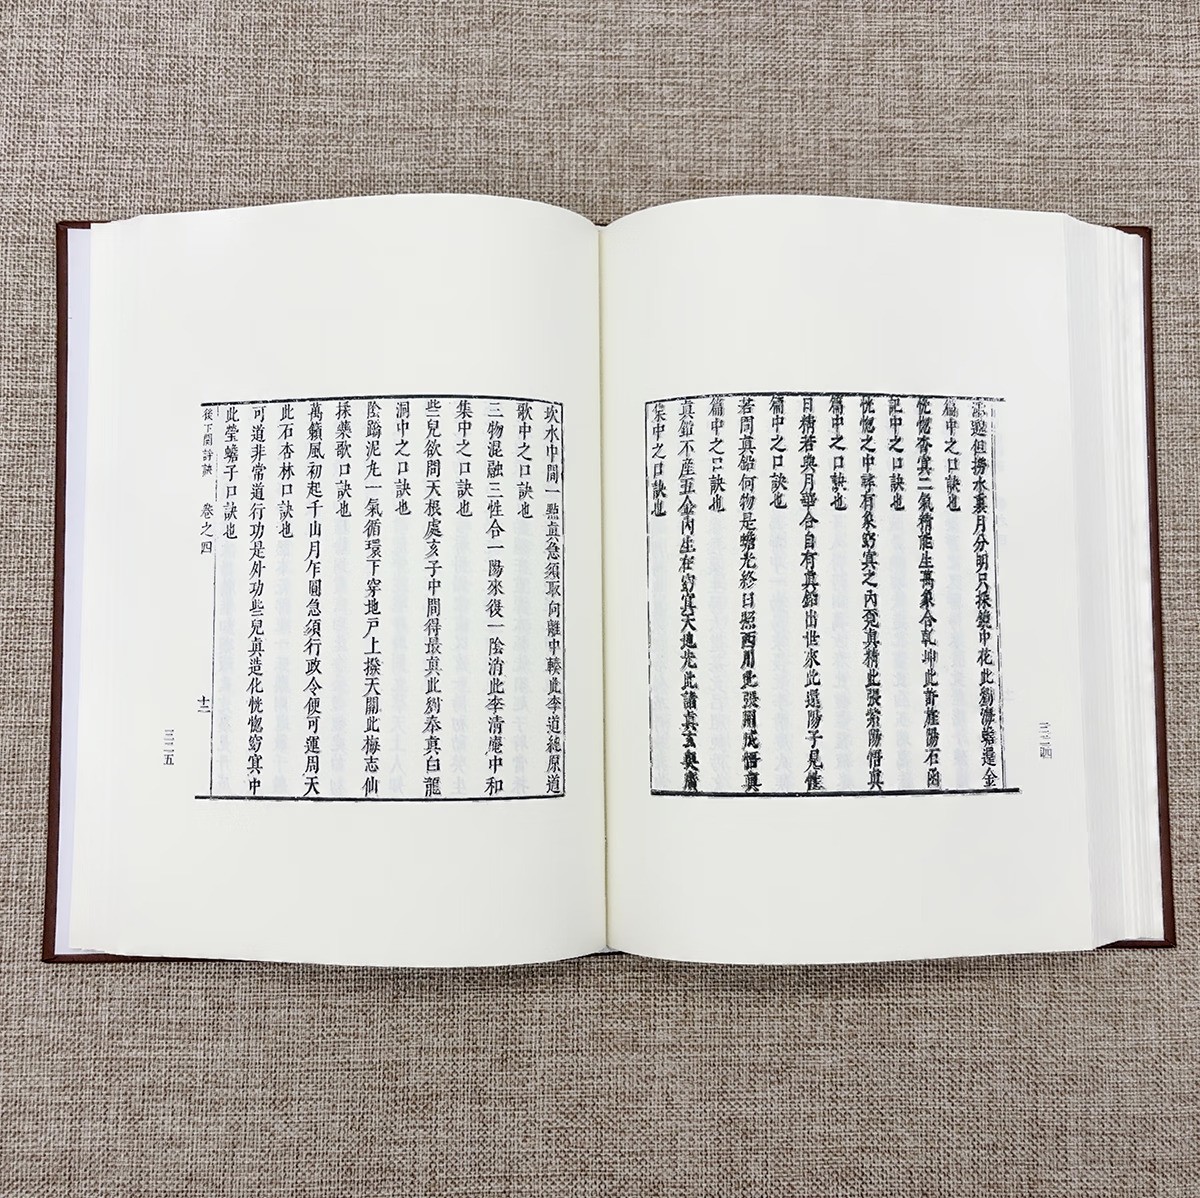 深邃但撈水裏月分明只採鏡中花此劉海蟾還金
篇中之口訣也
恍惚杳冥二氣精能生萬象合乾坤此許旌陽石函
記中之口訣也
恍惚之中尋有象窈冥之內覓真精此張紫陽悟真
篇中之口訣也
日精若與月華合自有真鉛出世來此還陽子見性
篇中之口訣也
若問真鉛何物是蟾光終日照西川此張用成悟真
篇中之口訣也
真鉛不產五金內生在窈冥天地先此諸真玄奥
集中之口訣也
三二四
坎水中間一點真急須取向離中輳此李道純原道
歌中之口訣也
三物混融三性合一陽來復一陰消此李清庵中和
集中之口訣也
些兒欲問天根處亥子中間得最真此劉奉真白龍
洞中之口訣也
陰蹻泥丸一氣循環下穿地戶上撥天關此梅志仙
採藥歌口訣也
萬籟風初起千山月乍圓急須行政令便可運周天
此石杏林口訣也
可道非常道行功是外功些兒真造化恍惚窈冥中
此瑩蟾子口訣也
卷之四
十二
三二五